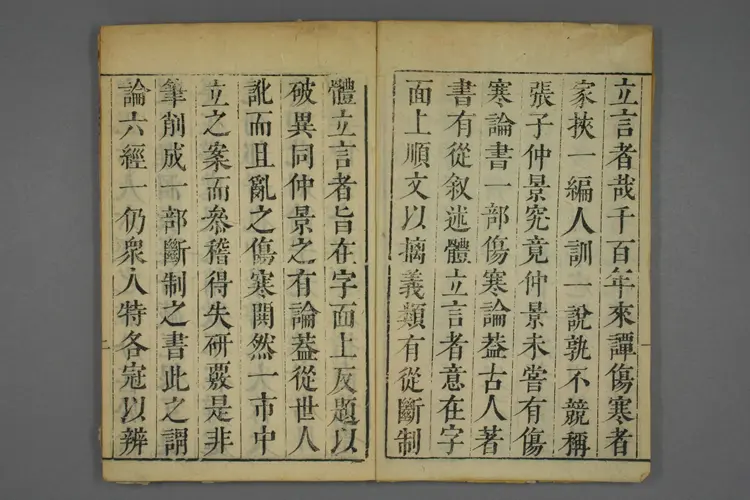 立言者哉千百年來譚傷寒者
家挾一編人訓一說孰不競稱
張子仲景究竟仲景未嘗有傷
寒論書一部傷寒論蓋古人著
書有從叙述體立言者意在字
面上順文以摛義類有從斷制
體立言者旨在字面上反題以
破異同仲景之有論蓋從世人
訛而且亂之傷寒閧然一市中
立之案而叅稽得失研覈是非
筆削成一部斷制之書此之謂
論六經一仍衆人特各冠以辨